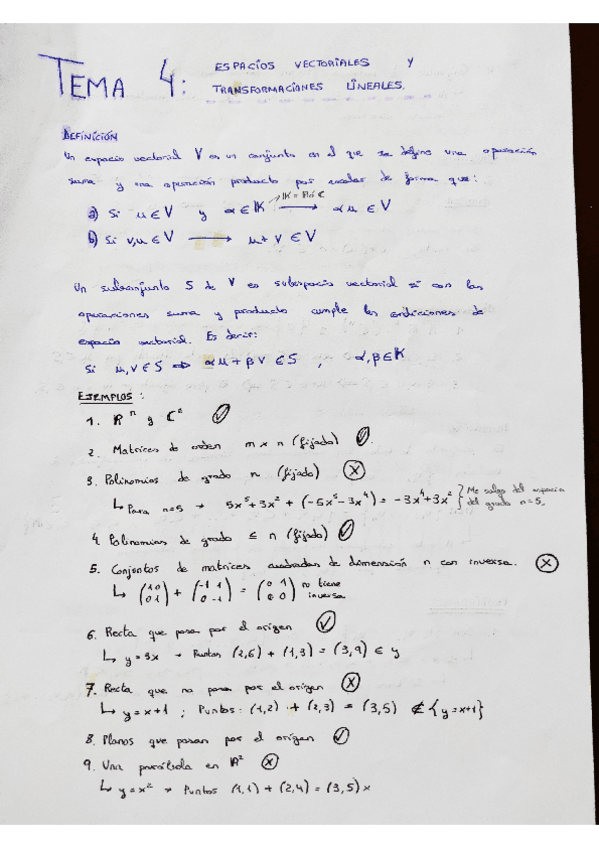 TEMA 4: ESPACIOS VECTORIALES Y
TRANSFORMACIONES LINEALES.
DEFINICIÓN
Un espacio vectorial V es un conjunto en el que se define una operación
suma y una operación producto por escalar de forma que:
a) Si u ∈ V y α ∈ K → α u ∈ V
K = R ó C
b) Si v, u ∈ V → u + v ∈ V
Un subconjunto S de V es subespacio vectorial si con las
operaciones suma y producto cumple las condiciones de
espacio vectorial. Es decir:
Si u, v ∈ S ⇒ α u + β v ∈ S , α, β ∈ K
EJEMPLOS:
1. Rⁿ y Cⁿ ✓
2. Matrices de orden m x n (fijado) ✓
3. Polinomios de grado n (fijado) ✗
↳ Para n=5 → 5x⁵+3x² + (-5x⁵-3x⁴) = -3x⁴+3x² } Me salgo del espacio
del grado n=5.
4. Polinomios de grado ≤ n (fijado) ✓
5. Conjuntos de matrices cuadradas de dimensión n con inversa. ✗
↳ (1 0 + (-1 1 = (0 1 no tiene
0 1) 0 -1) 0 0) inversa
6. Recta que pasa por el origen ✓
↳ y = 3x → Puntos (2,6) + (1,3) = (3,9) ∈ y
7. Recta que no pasa por el origen ✗
↳ y = x+1 ; Puntos: (1,2) + (2,3) = (3,5) ∉ {y=x+1}
8. Planos que pasan por el origen ✓
9. Una parábola en R² ✗
↳ y = x² → Puntos (1,1) + (2,4) = (3,5) x